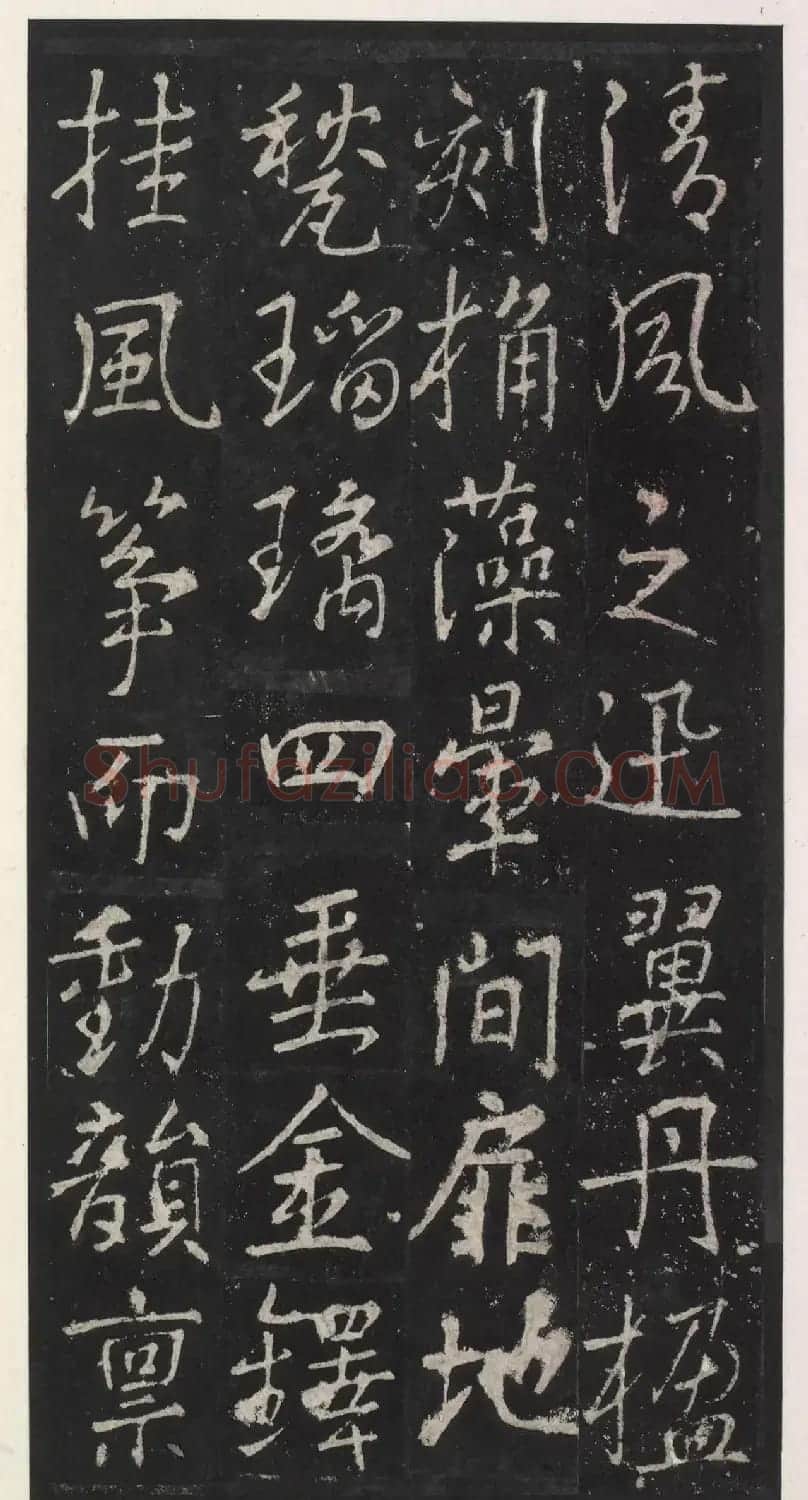 清風之迅翼丹楹
刻桷藻暈間扉地
甃瑠璃四垂金鐸
挂風箏而動韻禀
Shufaziliao.COM